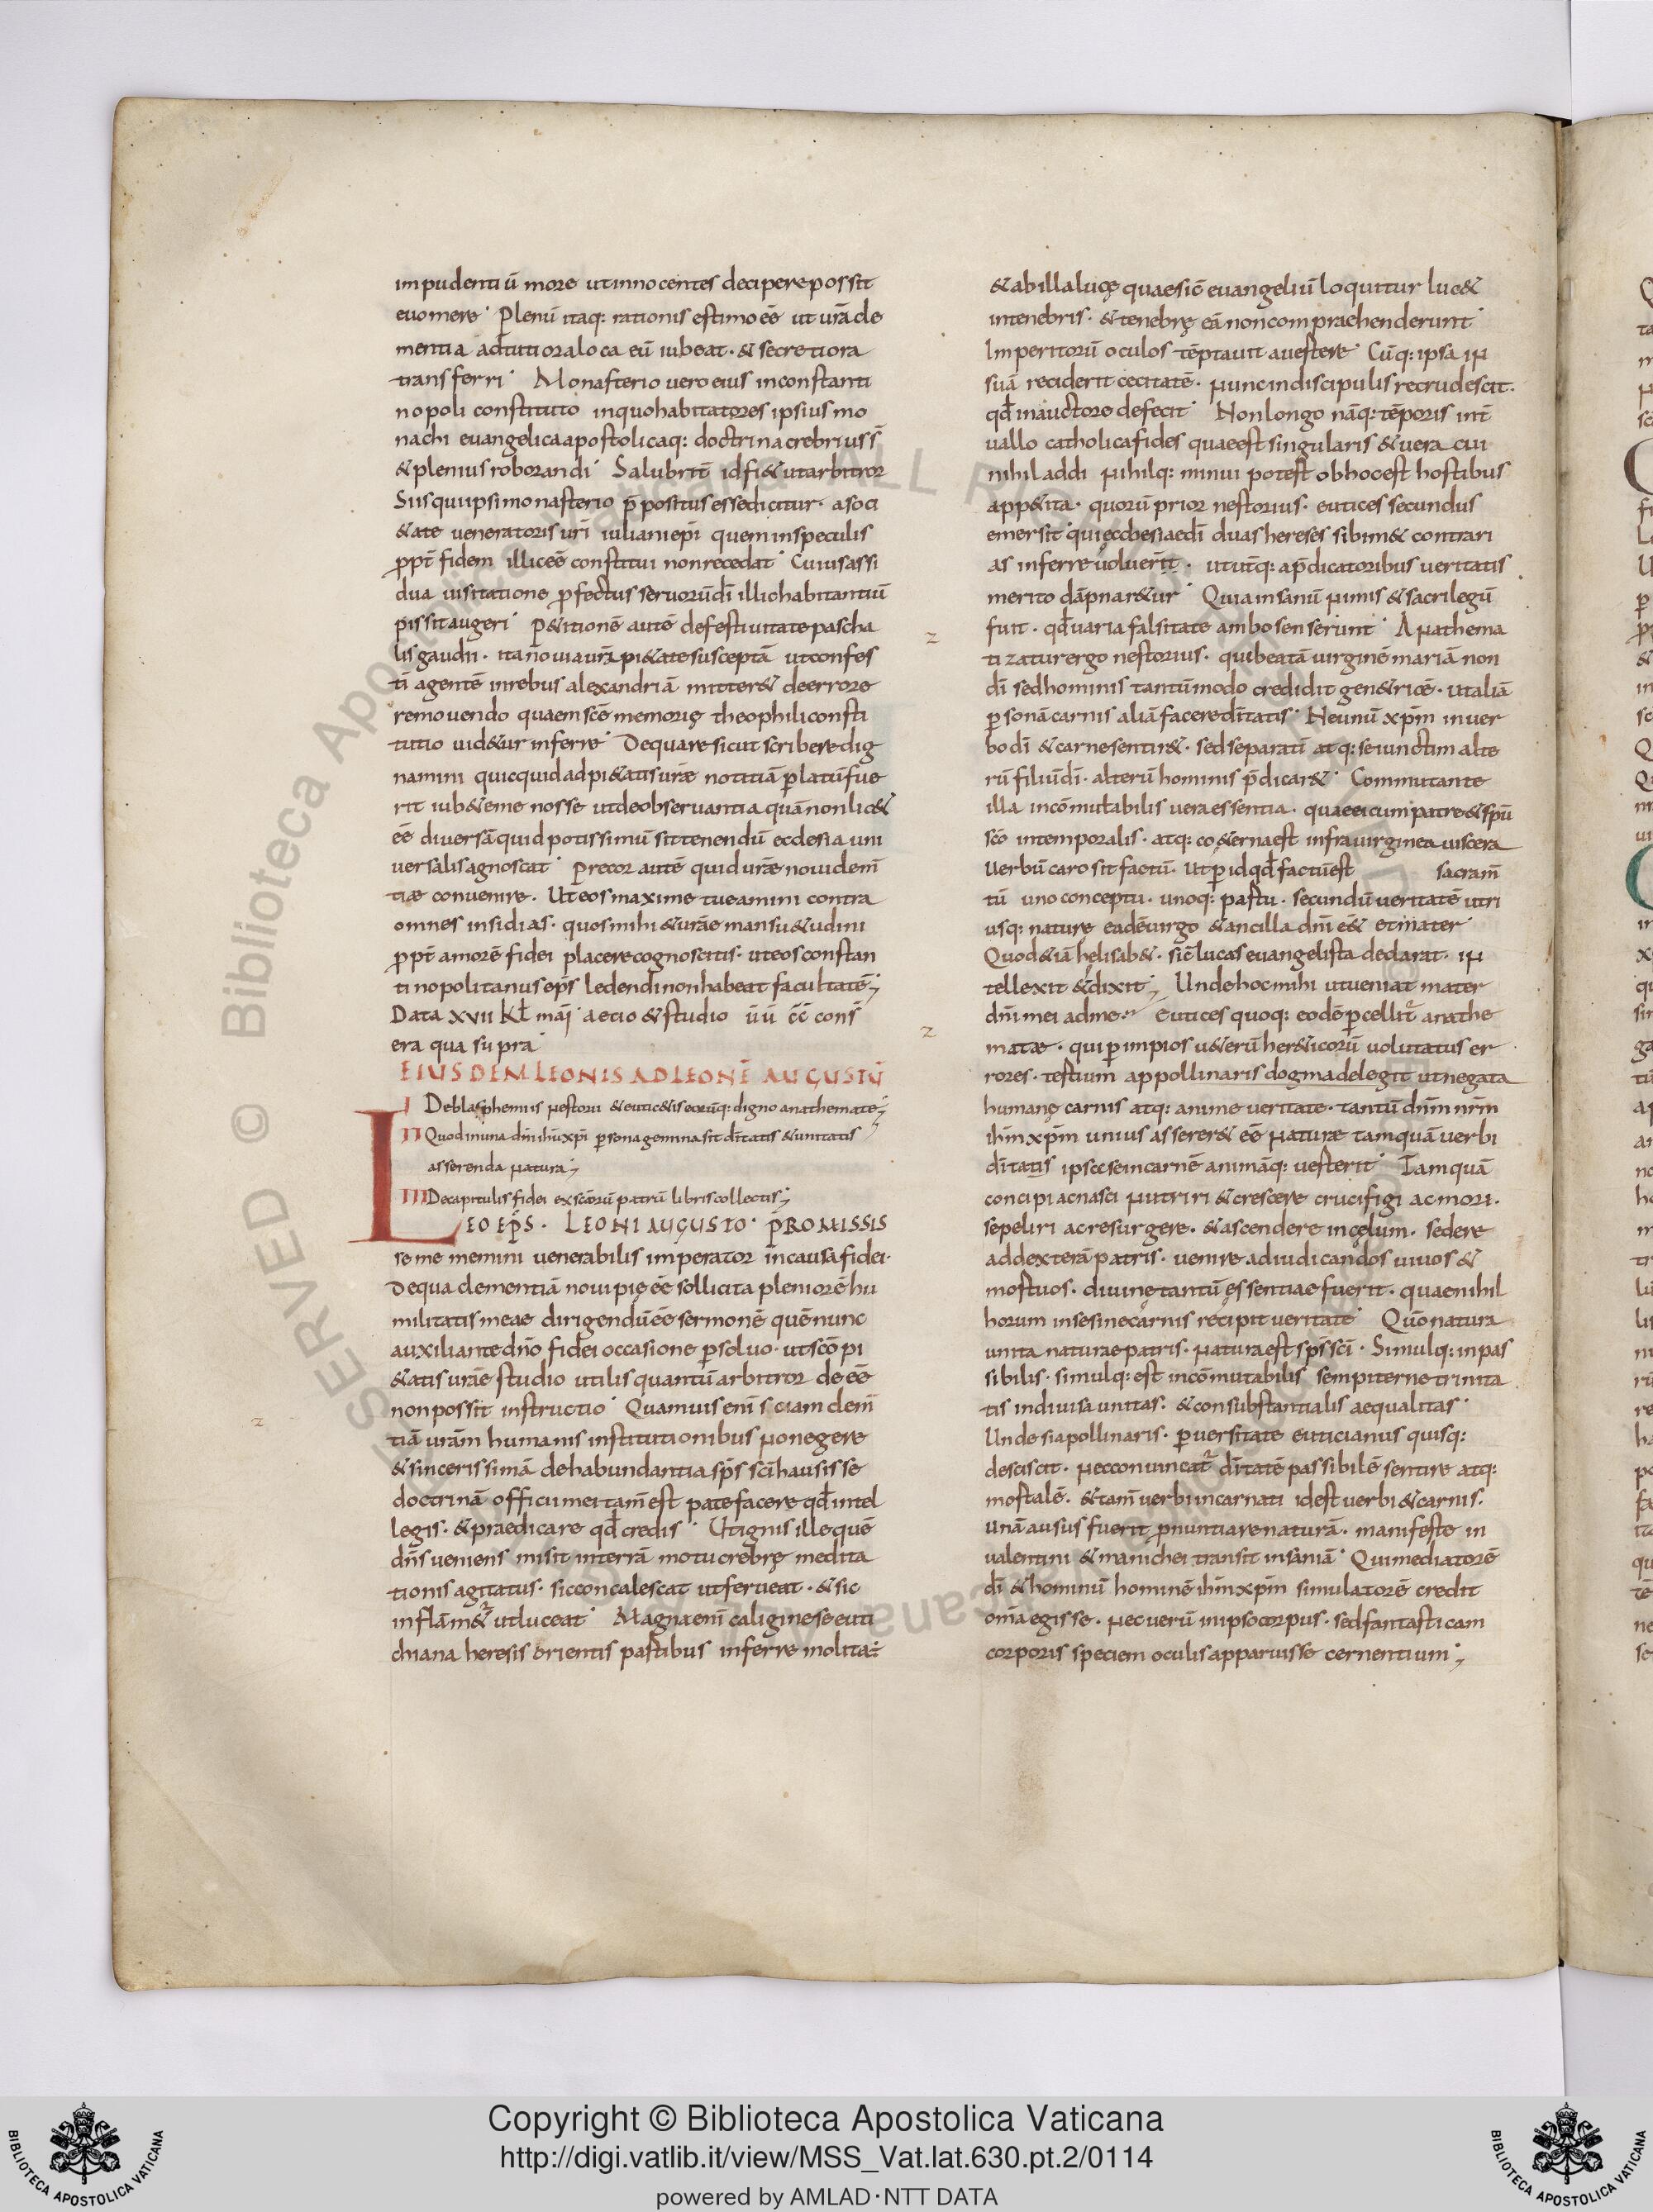 impudentiū more utinnocentes decipere possit
euomere· Plenū itaq: rationis estimo eē ut urā cle
mentia adtutiora loca eū iubeat· & secretiora
transferri· Monasterio uero eius inconstanti
nopoli constituto inquo habitatores ipsius mo
nachi euangelica apostolicaq: doctrina crebrius s̄
& plenius roborandi· Salubrit̄ id fi& utarbitror
Siisqui ipsi monasterio p̄positus esse dicitur· asoci
&ate ueneratoris uri iuliani epi quem inspeculis
ꝓpt̄ fidem illic eē constitui non recedat· Cuius assi
dua uisitatione ꝓfectus seruorū dī illic habitantiū
pissit augeri· P&itionē autē defestiuitate pascha
lis gaudii· ita n̄o uia urā pi&ate susceptā utconfes
tī agentē inrebus alexandriā mitter& deerrore
remouendo quaem scē memorię theophili consti
tutio uid&ur inferre· Dequa re sicut scribere dig
namini quicquid ad pi&atis uræ notitiā perlatū fue
rit iub&e me nosse utdeobseruantia quā non lic&
eē diuersā quid potissimū sit tenendū ecclesia uni
uersalis agnoscat· Precor autē quid uræ nouiden̄
tiæ conuenire· Ut eos maxime tueamini contra
omnes insidias· quos mihi & uræ mansu&udini
ꝓpt̄ amorē fidei placere cognoscitis· uteos constan
tinopolitanus ep̄s ledendi non habeat facultatē;
Data xvii kł maī aetio & studio ūū c̄c̄ cons̄
era qua supra
EIUSDEM LEONIS AD LEONĒ AUGUSTŪ
I Deblasphemiis nestorii & eutic&is eorūq: digno anathemate;
II Quod inuna dn̄i ihū xp̄i persona gemina sit dītatis & unitatis
asserenda natura;
III Decapitulis fidei ex scōrū patrū libris collectis;
LEO EP̄S· LEONI AUGUSTO· PROMISSIS
se me memini uenerabilis imperator incausa fidei·
Dequa clementiā noui pię eē sollicita pleniorē hu
militatis meae dirigendū eē sermonē quē nunc
auxiliante dn̄o fidei occasione persoluo· utscō pi
&atis uræ studio utilis quantū arbitror de eē
non possit instructio· Quamuis enī sciam clem̄
tiā uram̄ humanis institutionibus non egere
& sincerissimā dehabundantia sp̄s scī hausisse
doctrinā officii mei tam̄ est patefacere qd̄ intel
legis· & praedicare qd̄ credis· Ut ignis ille quē
dn̄s ueniens misit interrā motu crebrę medita
tionis agitatus· sic concalescat utferueat· & sic
inflām&r utluceat· Magna enī caligine se euti
chiana heresis orientis partibus inferre molita÷
& ab illa luce quae sic̄ euangeliū loquitur luc&
intenebris· & tenebrę eā non compraehenderunt·
Imperitorū oculos tēptauit auertere· Cūq: ipsa in
suā reciderit cecitatē· nunc indiscipulis recrudescit·
qd̄ inauctore defecit· Non longo nāq: tēporis int̄
uallo catholica fides quae est singularis & uera cui
nihil addi nihilq: minui potest obhoc est hostibus
app&ita· quorū prior nestorius· eutices secundus
emersit· qui ęcclesiae dī duas hereses sibim& contrari
as inferre uoluerit· ututq: ap̄dicatoribus ueritatis
merito dāpnar&ur· Quia insanū nimis & sacrilegū
fuit· qd̄ uaria falsitate ambo senserunt· Anathema
tizatur ergo nestorius· qui beatā uirginē mariā non
dī sed hominis tantūmodo credidit gen&ricē· utaliā
personā carnis aliā facere dītatis· Ne unū xp̄m in uer
bo dī & carne sentir&· sed separatī atq: seiunctim alte
rū filiū dī· alterū hominis p̄dicar&· Commutante
illa incōmutabilis uera essentia· quae ei cum patre & sp̄u
scō intemporalis· atq: co&erna est infra uirginea uiscera
Uerbū caro sit factū· Ut per id qd̄ factū est sacram̄
tū uno conceptu· unoq: partu· secundū ueritatē utri
usq: naturę eadē uirgo & ancilla dn̄i e& et mater·
Quod &iā hęlisab&· sic̄ lucas euangelista declarat· in
tellexit & dixit; Unde hoc mihi utueniat mater
dn̄i mei adme· Eutices quoq: eodē percellit̄ anathe
matæ· qui per impios u&erū her&icorū uolutatus er
rores· testium appollinaris dogma delegit utnegata
humanę carnis atq: anime ueritate· tantū dn̄m nrm̄
ihm̄ xp̄m unius asserer& eē naturæ tamquā uerbi
dītatis ipsęc se incarnē animāq: uerterit· Iamquā
concipi ac nasci nutriri & crescere crucifigi ac mori·
sepeliri ac resurgere· & ascendere incęlum· sedere
addexterā patris· uenire adiudicandos uiuos &
mortuos· diuinę tantū essentiae fuerit· quae nihil
horum inse sine carnis recipit ueritate· Quō natura
unita naturae patris· natura est sp̄s scī· Simulq: inpas
sibilis· simulq: est incōmutabilis sempiterne trinita
tis indiuisa unitas: & consubstantialis aequalitas·
Unde si apollinaris· peruersitate euticianus quisq:
desciscit· nec conuincat̄ dītatē passibilē sentire atq:
mortalē· & tam̄ uerbi incarnati id est uerbi & carnis·
Unā ausus fuerit ꝓnuntiare naturā· manifeste in
ualentini & manichei transit insaniā· Qui mediatorē
dī & hominū hominē ihm̄ xp̄m simulatorē credit
om̄ia egisse· nec uerū in ipso corpus· sed fantasticam
corporis speciem oculis apparuisse cernentium;
Copyright © Biblioteca Apostolica Vaticana
http://digi.vatlib.it/view/MSS_Vat.lat.630.pt.2/0114
powered by AMLAD·NTT DATA
BIBLIOTECA APOSTOLICA VATICANA
BIBLIOTECA APOSTOLICA VATICANA